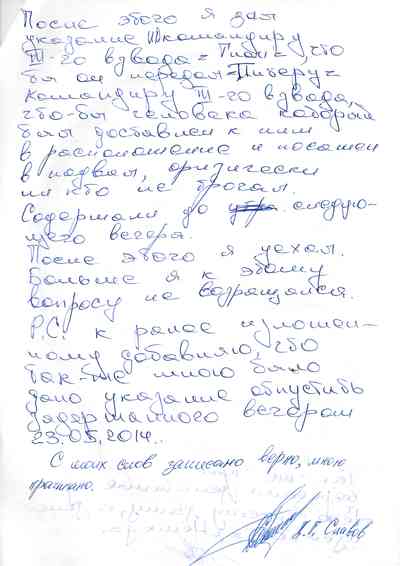 После этого я дал
указание командиру
III-го взвода - что
бы он передал
командиру III-го взвода,
что-бы человека который
был доставлен к ним
в расположение и посажен
в подвал, физически
ни кто не трогал.
Содержали до утра следую-
щего вечера.
После этого я уехал.
Больше я к этому
вопросу не возращался.
P.S. к ранее изложен-
ному добавляю, что
так-же мною было
дано указание отпустить
задержанного вечером
23.05.2014.
С моих слов записано верно, мною
прочитано.
Славов